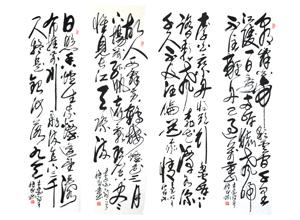 朝辞白帝彩云间千里
江陵一日还两岸猿声啼
不住轻舟已过万重山
李白乘舟将欲行忽闻岸上
踏歌声桃花潭水深千
尺不及汪伦送我情
故人西辞黄鹤楼烟花三月
下扬州孤帆远影碧空尽
唯见长江天际流
日照香炉生紫烟遥看瀑
布挂前川飞流直下三千
尺疑是银河落九天